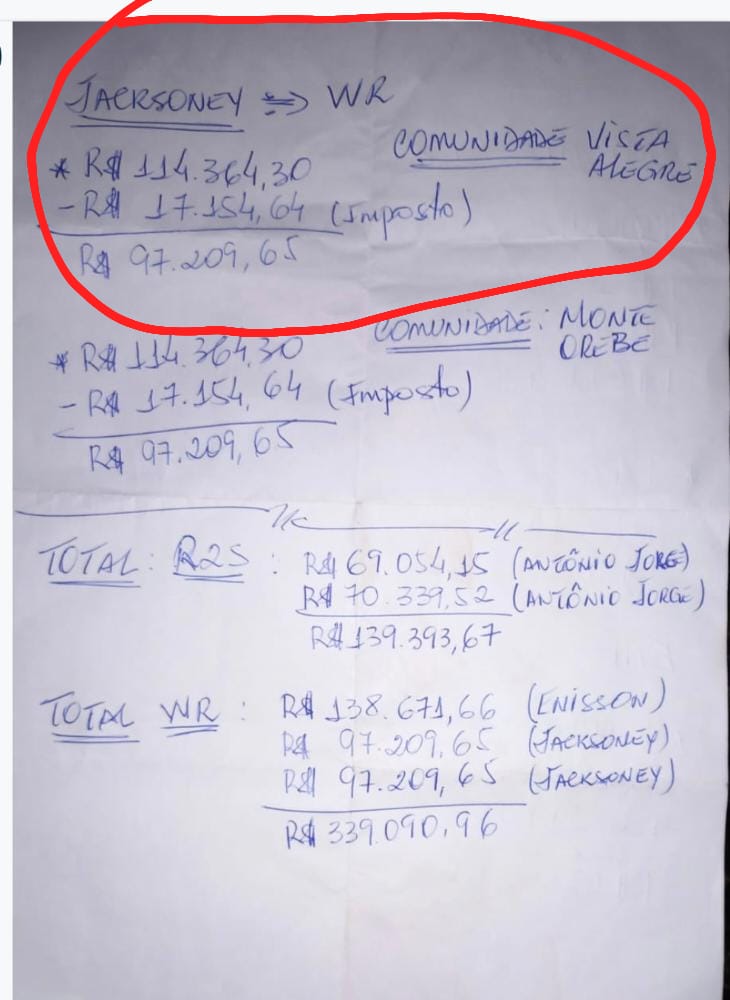 JACKSONEY => WR
COMUNIDADE VISTA ALEGRE
* R$ 114.364,30
- R$ 17.154,64 (Imposto)
R$ 97.209,65
COMUNIDADE: MONTE OREBE
* R$ 114.364,30
- R$ 17.154,64 (Imposto)
R$ 97.209,65
TOTAL: R2S: R$ 69.054,15 (ANTÔNIO JORGE)
R$ 70.339,52 (ANTÔNIO JORGE)
R$ 139.393,67
TOTAL WR: R$ 138.671,66 (ENISSON)
R$ 97.209,65 (JACKSONEY)
R$ 97.209,65 (JACKSONEY)
R$ 339.090,96